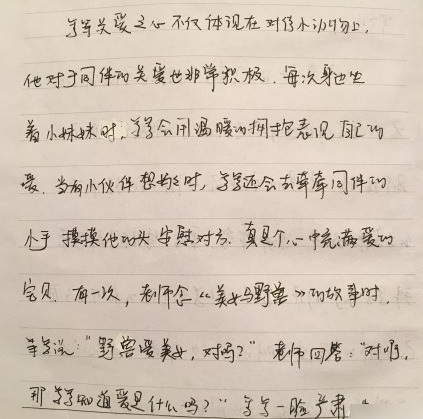 导导关爱之心不仅体现在对待小动物上,
他对于同伴的关爱也非常积极. 每次身边坐
着小妹妹时, 导导会用温暖的拥抱表现自己的
爱. 当有小伙伴想妈妈时, 导导还会去牵牵同伴的
小手 摸摸他的头 安慰对方. 真是个心中充满爱的
宝贝. 有一次, 老师念《美女与野兽》的故事时,
导导说:"野兽爱美女,对吗?" 老师回答:"对啊,
那导导知道爱是什么吗?" 导导一脸严肃 "